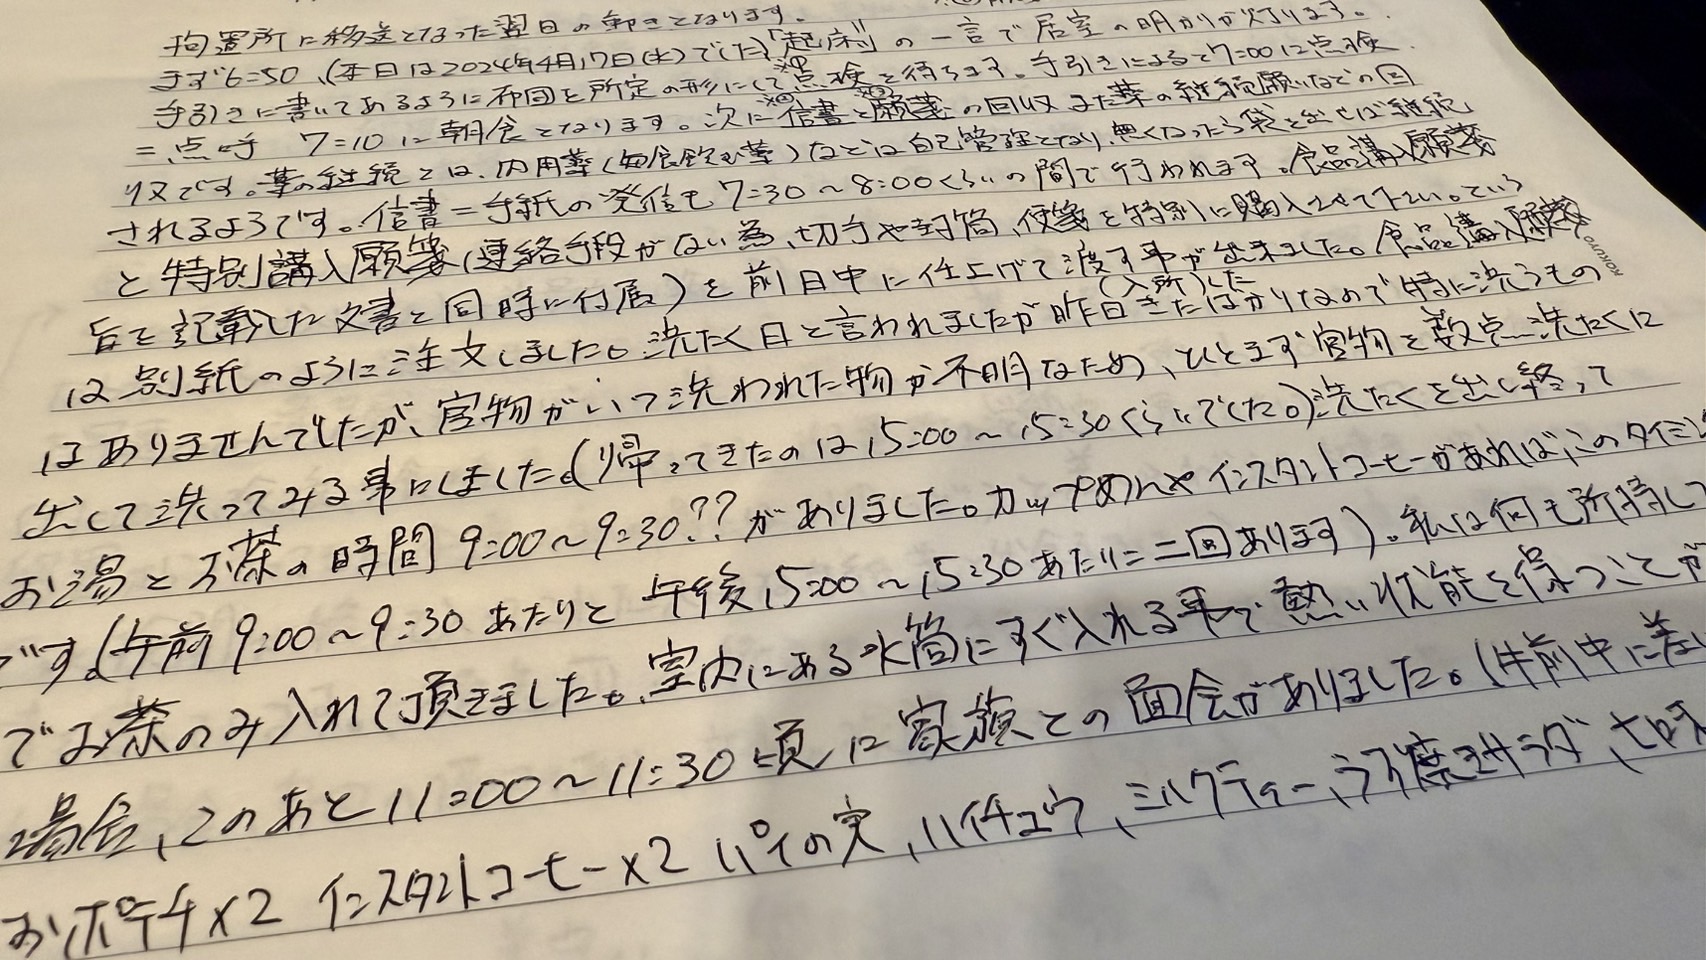 拘置所に移送となった翌日の動きとなります。
まず6:50、(本日は2024年4月17日(水)でした)「起床」の一言で居室の明かりが灯ります。
手引きに書いてあるように布団を所定の形にして点検を待ちます。手引きによると7:00に点検
=点呼 7:10に朝食となります。次に信書と願箋の回収また薬の継続願いなどの回
収です。薬の継続とは、内用薬(毎食飲む薬)などは自己管理となり、無くなったら袋を出せば継続
されるようです。信書=手紙の発信も7:30〜8:00くらいの間で行われます。食品購入願箋
と特別購入願箋(連絡手段がない為、切手や封筒、便箋を特別に購入させて下さい。という
旨を記載した文書と同時に付属)を前日中に仕上げて渡す事が出来ました。食品購入願箋
は別紙のように注文しました。洗たく日と言われましたが昨日きた(入所した)ばかりなので特に洗うもの
はありませんでしたが、官物がいつ洗われた物か不明なため、ひとまず官物を数点洗たくに
出して洗ってみる事にしました。(帰ってきたのは15:00〜15:30くらいでした。)洗たくを出し終って
お湯とお茶の時間9:00〜9:30??がありました。カップめんやインスタントコーヒーがあれば、このタイミン
です。(午前9:00〜9:30あたりと午後15:00〜15:30あたりに二回あります)。私は何も所持して
でお茶のみ入れて頂きました。室内にある水筒にすぐ入れる事で熱い状態を保つことが
場合、このあと11:00〜11:30頃に家族との面会がありました。(午前中に差し
おポテチ×2 インスタントコーヒー×2 パイの実、ハイチュウ、ミルクティー、うす焼きサラダ、